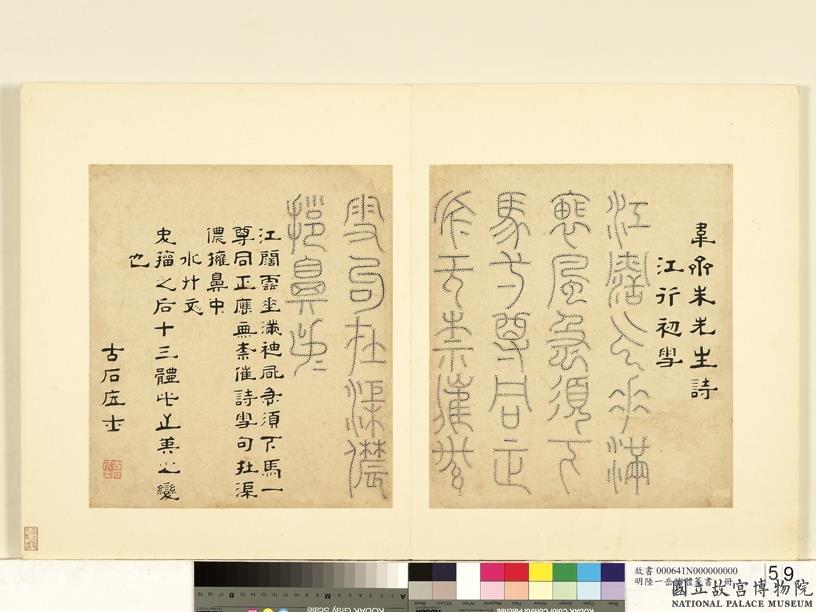 韋齋朱先生詩
江行初雪
江闊雲垂滿
袖風急須下
馬一尊同正
應無柰催詩
雪句在渠儂
擁鼻中
江闊雲垂滿袖風急須下馬一
尊同正應無柰催詩雪句在渠
儂擁鼻中
史籀之后十三體此其之變
也
古石居士
故書 000641N000000000
明陸一岳體篆書 冊
59
國立故宮博物院
NATIONAL PALACE MUSEUM
KODAK Gray Scale